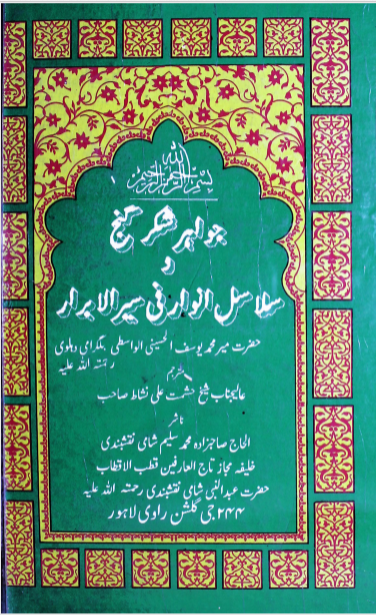 بسم الله الرحمن الرحيم
جواہر شکر گنج
و
سلاسل انوار فی سیر الابرار
حضرت میر محمد یوسف الحسینی الواسطی بلگرامی دہلوی
رحمتہ اللہ علیہ
مترجم
عالیجناب شیخ حشمت علی نشاط صاحب
ناشر
الحاج صاجزادہ محمد سلیم شامی نقشبندی
خلیفہ مجاز تاج العارفین قطب الاقطاب
حضرت عبدالنبی شامی نقشبندی رحمتہ اللہ علیہ
۲۴۴ جی گلشن راوی لاہور